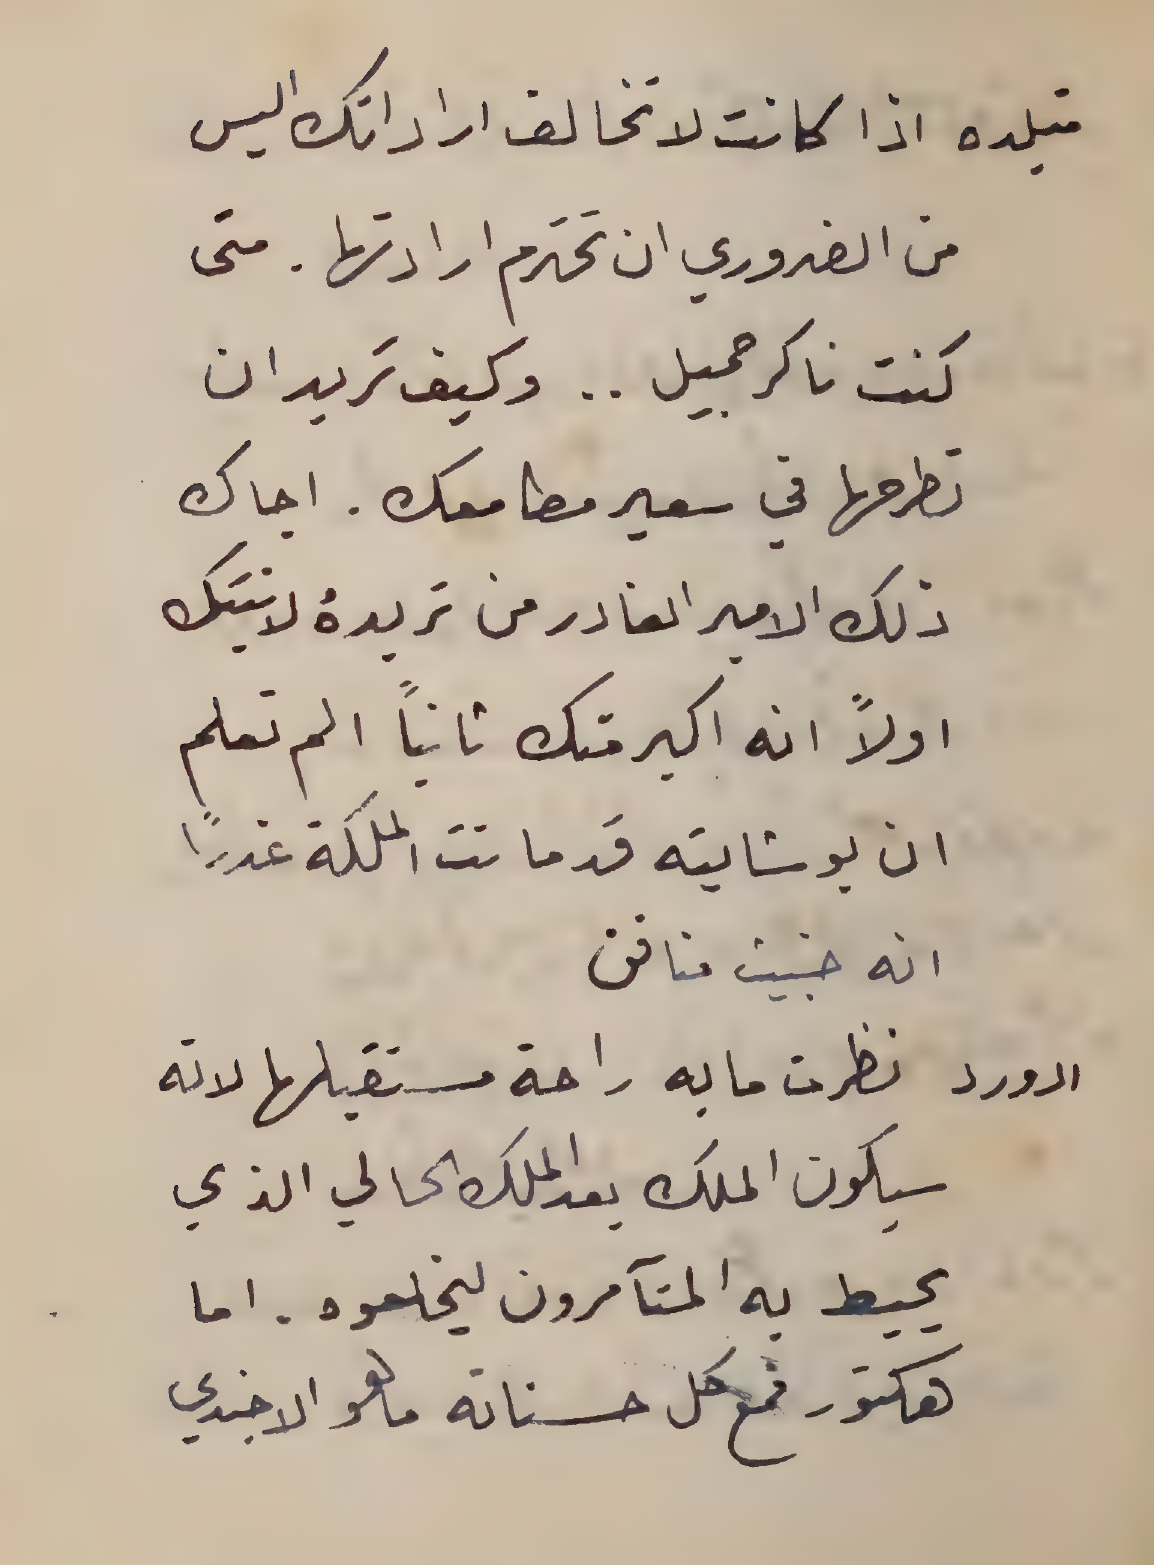 متيلده اذا كانت لا تخالف اراداتك اليس
من الضروري ان تحترم ارادتها . متى
كنت ناكر جميل .. وكيف تريد ان
تطرحها في سعير مطامعك . اجاك
ذلك الامير الغادر من تريدهُ لابنتك
اولاً انه اكبر منك ثانياً الم تعلم
ان بوشايته قد ماتت الملكة غدرًا
انه خبيث منافق
ادورد نظرت ما به راحة مستقبلها لانه
سيكون الملك بعد الملك الحالي الذي
يحيط به المتآمرون ليخلعوه . اما
هكتور فمع كل حسناته ما هو الا جندي